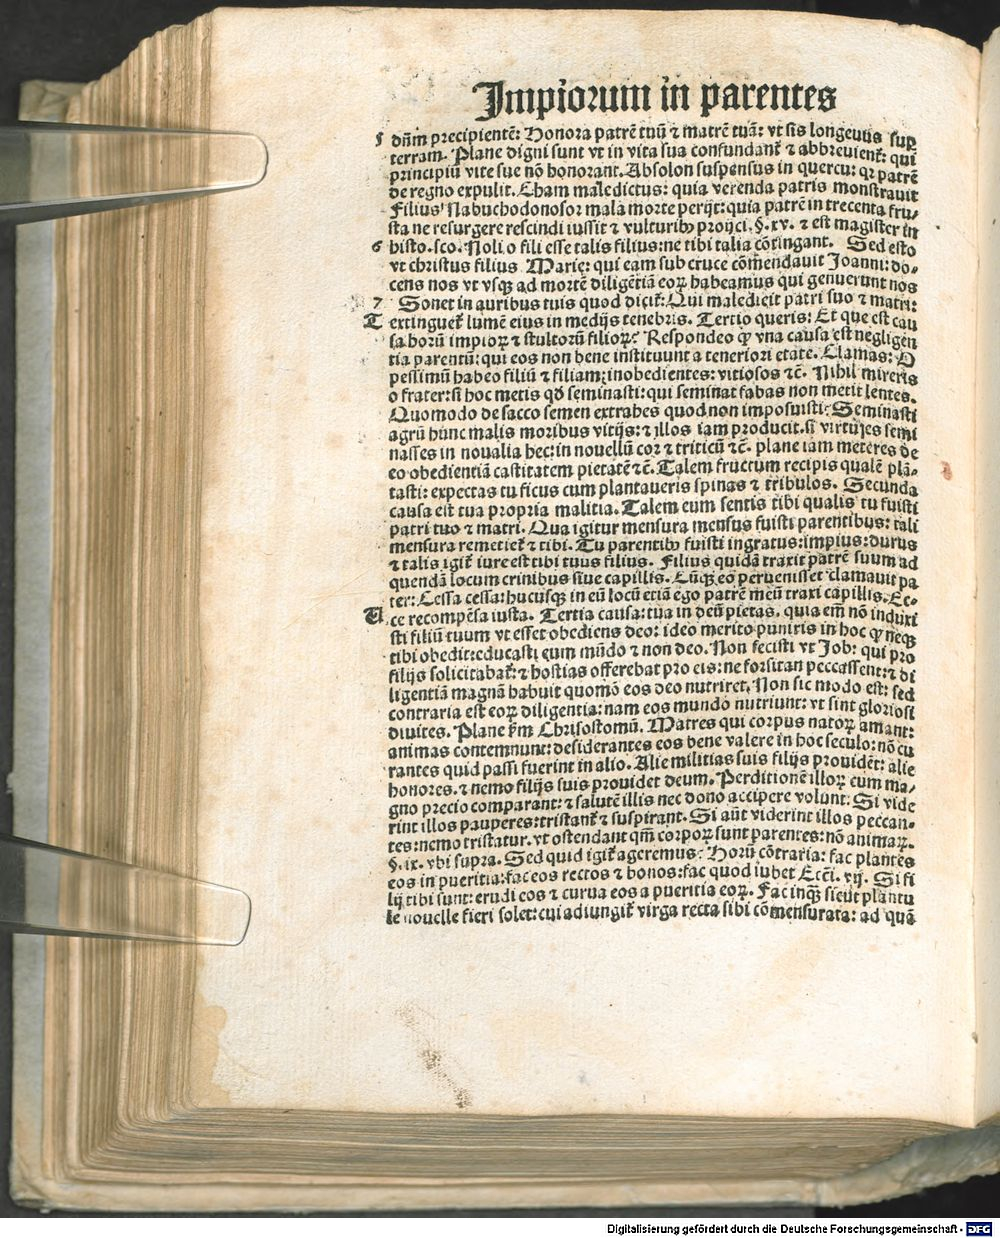 Impiorum in parentes
5 dn̄m precipientē: Honora patrē tuū ⁊ matrē tuā: vt sis longeuus sup
terram. Plane digni sunt vt in vita sua confundant᷑ ⁊ abbreuient᷑: qui
principiū vite sue nō honorant. Absolon suspensus in quercu: qꝛ patrē
de regno expulit. Cham maledictus: quia verenda patris monstrauit
Filius Nabuchodonosor mala morte perijt: quia patrē in trecenta fru/
sta ne resurgere rescindi iussit ⁊ vulturibꝰ proijci. §. xv. ⁊ est magister in
6 histo. sco. Noli o fili esse talis filius: ne tibi talia cōtingant. Sed esto
vt christus filius Marie: qui eam sub cruce cōmendauit Joanni: do/
cens nos vt vsqꝫ ad mortē diligētiā eoꝝ habeamus qui genuerunt nos
7 Sonet in auribus tuis quod dicit᷑: Qui maledicit patri suo ⁊ matri:
T extinguet᷑ lumē eius in medijs tenebris. Tertio queris: Et que est cau
sa horū impioꝝ ⁊ stultorū filioꝝ: Respondeo ꝙ vna causa est negligen
tia parentū: qui eos non bene instituunt a teneriori etate. Clamas: O
pessimū habeo filiū ⁊ filiam: inobedientes: vitiosos ⁊c̄. Nihil mireris
o frater: si hoc metis qd̓ seminasti: qui seminat fabas non metit lentes.
Quomodo de sacco semen extrahes quod non imposuisti: Seminasti
agrū hunc malis moribus vitijs: ⁊ illos iam producit. si virtutes semi
nasses in noualia hec: in nouellū cor ⁊ triticū ⁊c̄. plane iam meteres de
eo obedientiā castitatem pietatē ⁊c̄. Talem fructum recipis qualē plā/
tasti: expectas tu ficus cum plantaueris spinas ⁊ tribulos. Secunda
causa est tua propria malitia. Talem eum sentis tibi qualis tu fuisti
patri tuo ⁊ matri. Qua igitur mensura mensus fuisti parentibus: tali
mensura remetiet᷑ ⁊ tibi. Tu parentibꝰ fuisti ingratus: impius: durus
⁊ talis igit᷑ iure est tibi tuus filius. Filius quidā traxit patrē suum ad
quendā locum crinibus siue capillis. Cūqꝫ eo peruenisset clamauit pa
ter: Cessa cessa: hucusqꝫ in eū locū etiā ego patrē meū traxi capillis. Ec/
U ce recompēsa iusta. Tertia causa: tua in deū pietas. quia em̄ nō induxi
sti filiū tuum vt esset obediens deo: ideo merito puniris in hoc ꝙ neqꝫ
tibi obedit: educasti eum mūdo ⁊ non deo. Non fecisti vt Job: qui pro
filijs solicitabat᷑: ⁊ hostias offerebat pro eis: ne forsitan peccassent: ⁊ di
ligentiā magnā habuit quomō eos deo nutriret. Non sic modo est: sed
contraria est eoꝝ diligentia: nam eos mundo nutriunt: vt sint gloriosi
diuites. Plane ẜm Chrisostomū. Matres qui corpus natoꝝ amant:
animas contemnunt: desiderantes eos bene valere in hoc seculo: nō cu
rantes quid passi fuerint in alio. Alie militias suis filijs prouidēt: alie
honores. ⁊ nemo filijs suis prouidet deum. Perditionē illoꝝ cum ma/
gno precio comparant: ⁊ salutē illis nec dono accipere volunt: Si vide
rint illos pauperes: tristant᷑ ⁊ suspirant. Si aūt viderint illos peccan/
tes: nemo tristatur. vt ostendant qm̄ corpoꝝ sunt parentes: nō animaꝝ.
§. ix. vbi supra. Sed quid igit᷑ ageremus: Horū cōtraria: fac plantes
eos in pueritia: fac eos rectos ⁊ bonos: fac quod iubet Ecci. vij. Si fi
lij tibi sunt: erudi eos ⁊ curua eos a pueritia eoꝝ. Fac inqꝫ sicut plantu
le nouelle fieri solet: cui adiungit᷑ virga recta sibi cōmensurata: ad quā
Digitalisierung gefördert durch die Deutsche Forschungsgemeinschaft - DFG